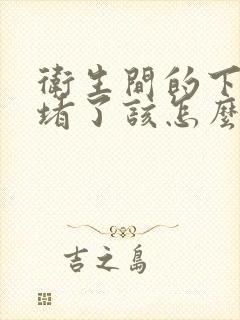 衛生間的下
堵了該怎麼
吉之島